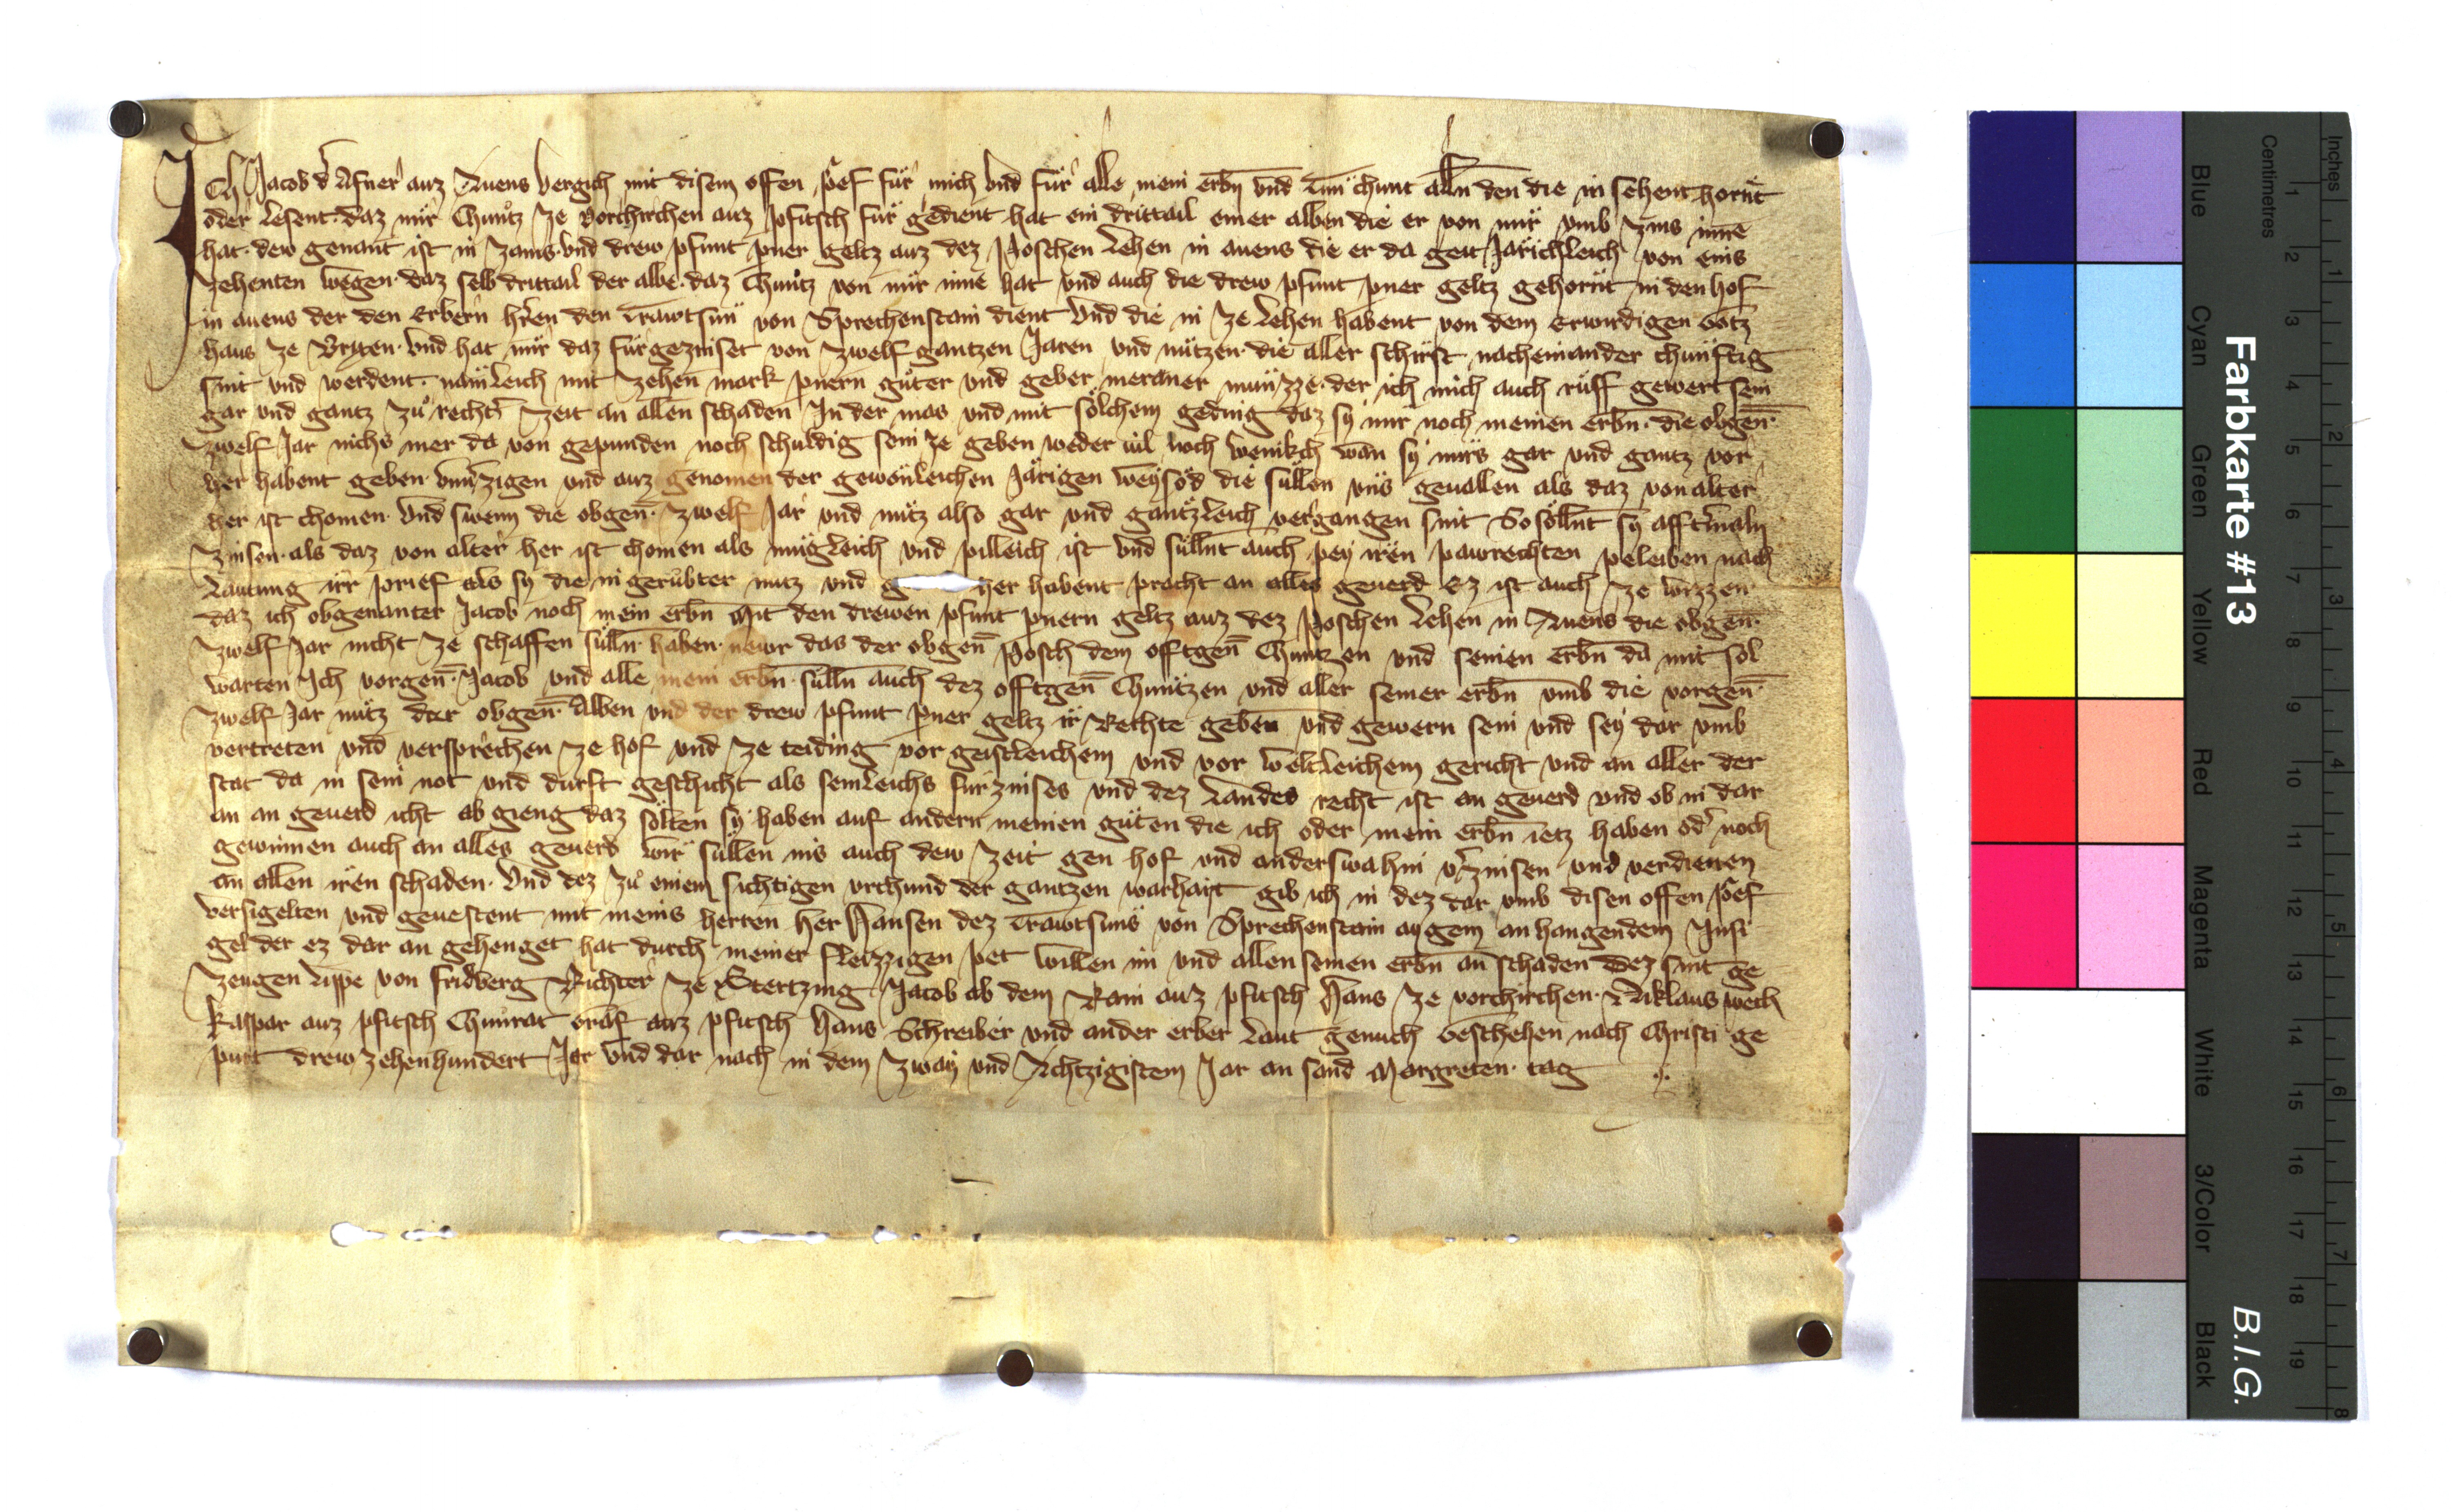 Ich Jacob d᷑ Afner auz Auens vergich mit disem offen prief fuͤr mich vnd fuͤr alle mein erbn̄ vnd tuͤn chunt alln̄ den die in sehent hornt
oder lesent · daz mir Chuncz ze vorchirchen auz Pfitsch fuͤr gedient hat ein drittail einer alben die er von mir vmb zins inne
hat · dew genant ist in Zams · vnd drew pfunt pner geltz auz dez Poschen lehen in auens die er da geit Jarichleich von eins
zehenten wegen · daz selb drittail der albe · daz Chuncz von mir inne hat vnd auch die drew pfunt pner geltz gehornt in den hof
in auens der den Erbern hren den Trawtsun von Sprechenstain dient vnd die in ze lehen habent von dem Erwirdigen Gotz
haus ze Brixen · vnd hat mir daz fuͤrgezinset von zwelf gantzen Jaren vnd nutzen · die aller schirst nacheinander chunftig
sint vnd werdent · namleich mit zehen mark pnern guter vnd geber meraner munzze · der ich mich auch ruff gewert sein
gar vnd gantz zu rechter zeit an allen schaden In der mas vnd mit solchem geding daz sy mir noch meinen erbn̄ · die obgen̄ ·
zwelf Jar nichs mer da von gepunden noch schuldig sein ze geben weder vil noch wenikch wan sy mirs gar vnd gantz vor
her habent geben · vnuerzigen vnd auz genomen der gewonleichen Jarigen weysod die sullen vns geuallen als daz von alter
her ist chomen · vnd swenn die obgen̄ · zwelf Jar vnd nutz also gar vnd gantzleich vergangen sint So sollnt sy afftermaln
zinsen · als daz von alter her ist chomen als mugleich vnd pilleich ist vnd sullnt auch pey iren pawrechten peleiben nach
lautung irr prief als sy die in gerubter nutz vnd g her habent pracht an alles geuerd Ez ist auch ze wizzen
daz ich obgenanter Jacob noch mein erbn̄ Mit den drewen pfunt pnern geltz auz dez Poschen lehen in Auens die obgen̄ ·
zwelf Jar nicht ze schaffen sulln̄ haben · newr das der obgen̄ Posch dem offtgen̄ Chunczen vnd seinen erbn̄ da mit sol
warten Ich vorgen̄ · Jacob vnd alle mein erbn̄ · sulln̄ auch dez offtgen̄ Chunczen vnd aller seiner erbn̄ vmb die vorgen̄ ·
zwelf Jar nutz der obgen̄ · Alben vnd der drew pfunt pner geltz ir Rechte geben vnd gewern sein vnd sey dar vmb
vertreten vnd versprechen ze hof vnd ze teiding vor geistleichem vnd vor weltleichem gericht vnd an aller der
stat da in sein not vnd durft geschicht als semleichs furzinses vnd dez Landes recht ist an geuerd vnd ob in dar
an an geuerd icht ab gieng daz solten sy haben auf andern meinen guten die ich oder mein erbn̄ ietz haben od᷑ noch
gewinnen auch an alles geuerd wir sullen ins auch dew zeit gen hof vnd anderswahin v᷑zinsen vnd verdienen
an allen iren schaden · Vnd dez zu einem sichtigen vrchund der gantzen warhait gib ich in dez dar vmb disen offen prief
versigelten vnd geuestent mit meins herren her Hansen dez Trawtsuns von Sprechenstain aygem anhangendem Insi
gel der ez dar an gehenget hat durch meiner fleizzigen pet willen im vnd allen seinen erbn̄ an schaden Dez sint ge
zeugen Lippe von fridberg Richter ze Stertzing Jacob ab dem Rain auz pfitsch Hans ze vorchirchen · Niklaus wech
Kaspar auz pfitsch Chunrat Graf auz pfitsch Hans Schreiber vnd ander erber Laut genuch Geschehen nach Christi ge
purt drewzehenhundert Jar vnd dar nach in dem zway vnd Achtzigistem Jar an sand Margreten · tag
Farbkarte #13
B.I.G.
Centimetres
Inches
Blue
Cyan
Green
Yellow
Red
Magenta
White
3/Color
Black
1 2 3 4 5 6 7 8 9 10 11 12 13 14 15 16 17 18 19
1 2 3 4 5 6 7 8